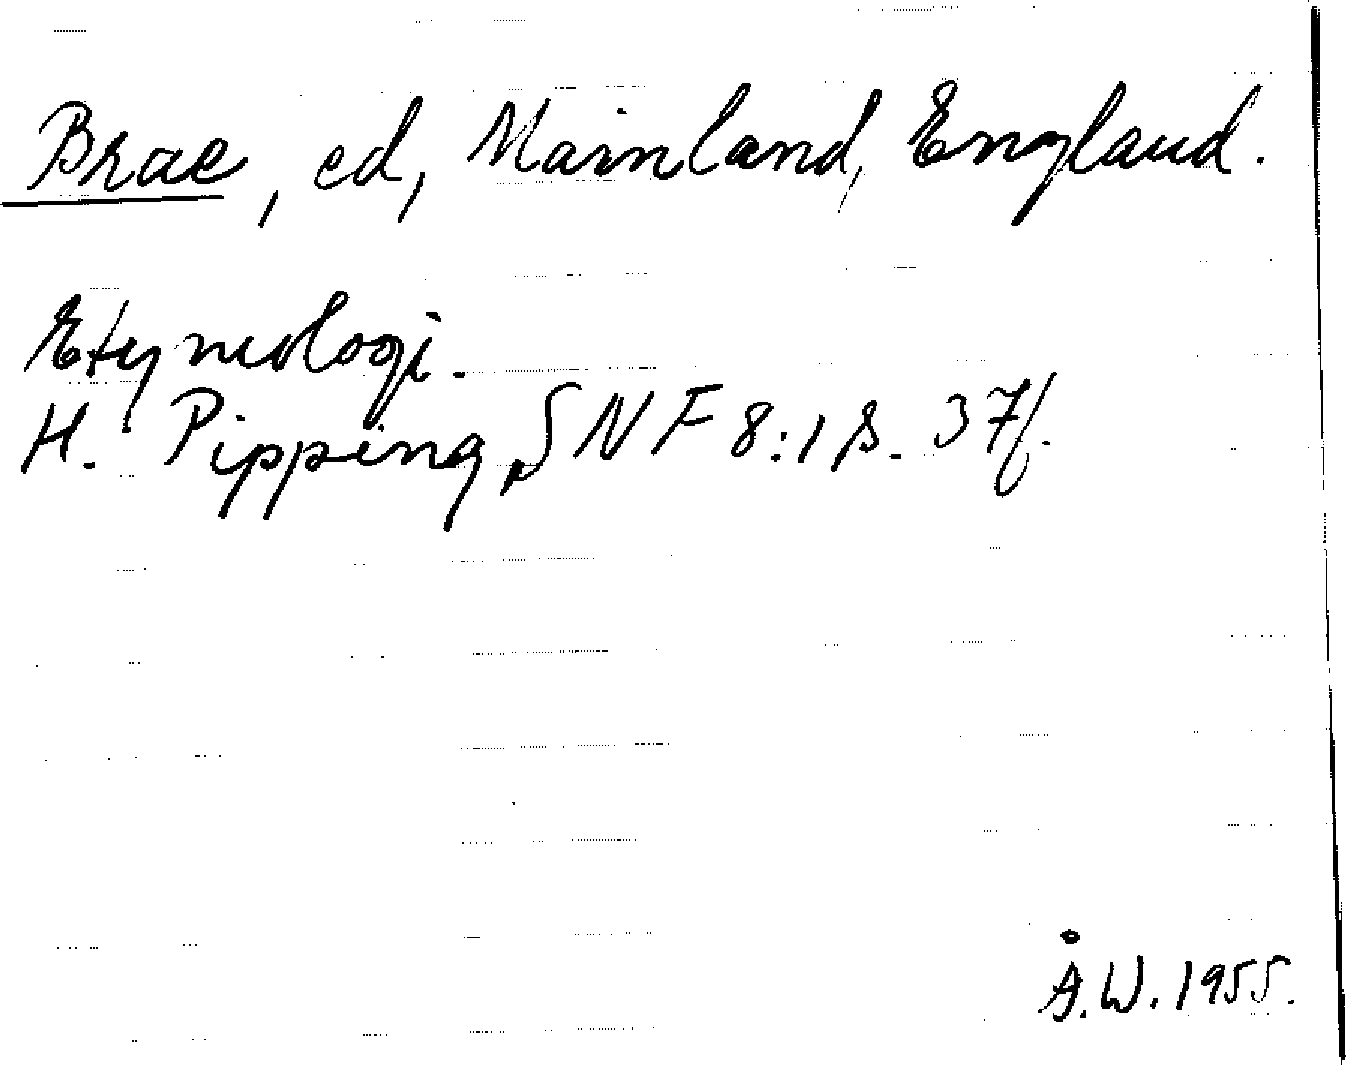 Brae, ed, Mainland, England.
Etymologi.
H. Pipping, SNF 8:1 s. 37f.
Å.W. 1955.